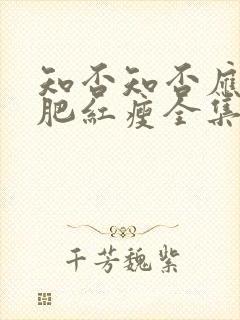 知否知否應
肥紅瘦全集
千芳魏紫